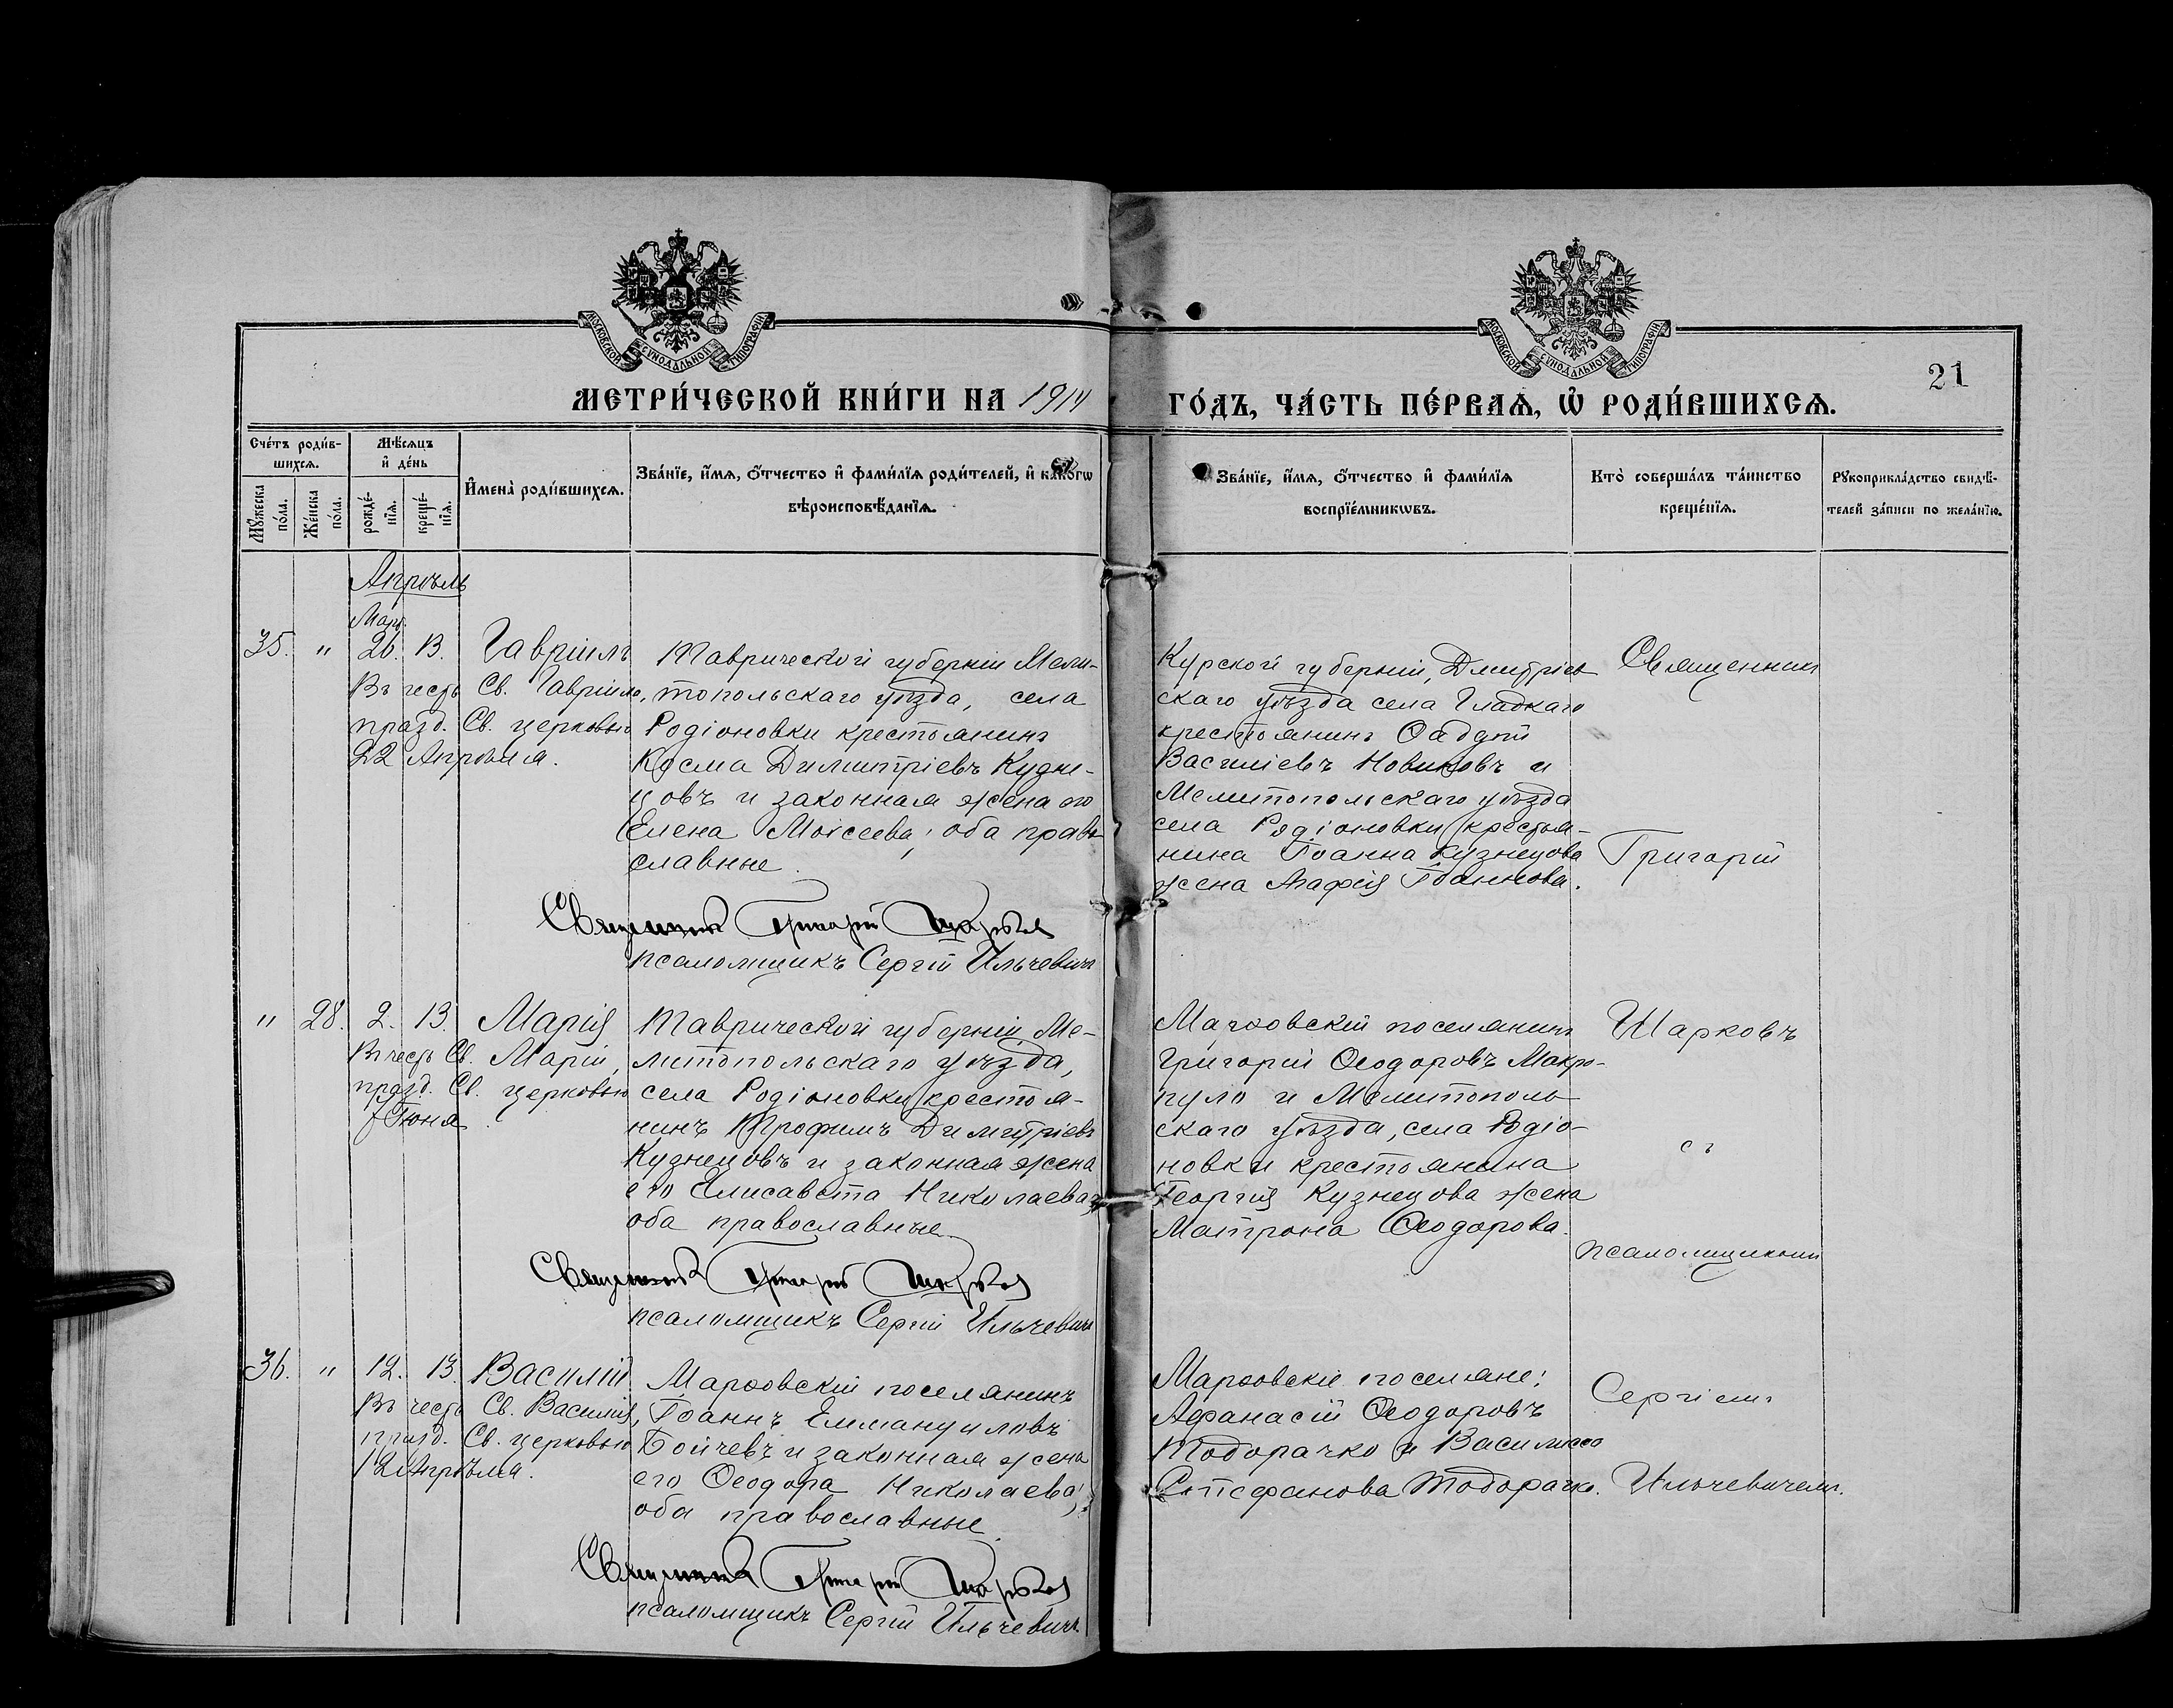 МОСКОВСКОЙ СѴНОДАЛЬНОЙ ТИПОГРАФІИ
МОСКОВСКОЙ СѴНОДАЛЬНОЙ ТИПОГРАФІИ
21
МЕТРИ́ЧЕСКОЙ КНИ́ГИ НА 1914 ГО́ДЪ, ЧА́СТЬ ПЕ́РВАѦ, Ѡ҆ РОДИ́ВШИХСѦ.
Сче́тъ роди́в-
шихсѧ.
Мѣ́сѧцъ
и҆ де́нь
Мꙋ́жеска
по́ла.
Же́нска
по́ла.
рожде́-
нїѧ.
креще́-
нїѧ.
И҆мена̀ роди́вшихсѧ.
Зва́нїе, и҆́мѧ, о҆́тчество и҆ фами́лїѧ роди́телей, и҆ како́гѡ
вѣроисповѣ́данїѧ.
Зва́нїе, и҆́мѧ, о҆́тчество и҆ фами́лїѧ
воспрїе́мникѡвъ.
Кто̀ соверша́лъ та́инство
креще́нїѧ.
Рꙋкоприкла́дство свидѣ́-
телей за́писи по жела́нїю.
Апрѣль
Мар.
35. " 26. 13. Гавріилъ
Въ честь Св. Гавріила,
празд. Св. церковью
22 Апрѣля.
Таврической губерніи Мели-
топольскаго уѣзда, села
Родіоновки крестьянинъ
Косма Димитріевъ Кузне-
цовъ и законная жена его
Елена Моісеева; оба право-
славные.
Священникъ Григорій Шарковъ
псаломщикъ Сергій Ильчевичъ
Курской губерніи, Дмитріев-
скаго уѣзда села Гладкаго
крестьянинъ
Василіевъ Новиковъ и
Мелитопольскаго уѣзда
села Родіоновки крестья-
нина Іоанна Кузнецова
жена Іоаннова.
Священникъ
Григорій
" 28. 2. 13. Марія
Въ честь Св. Маріи,
празд. Св. церковью
Іюня.
Таврической губерніи, Ме-
литопольскаго уѣзда,
села Родіоновки крестья-
нинъ Трофимъ Димитріевъ
Кузнецовъ и законная жена
его Елисавета Николаева;
оба православные.
Священникъ Григорій Шарковъ
псаломщикъ Сергій Ильчевичъ
Марѳовскій поселянинъ
Григорій Ѳеодоровъ Макро-
пуло и Мелитополь-
скаго уѣзда, села Родіо-
новки крестьянина
Георгія Кузнецова жена
Матрона Ѳеодорова.
Шарковъ
съ
псаломщикомъ
36. " 12. 13. Василій
Въ честь Св. Василія,
празд. Св. церковью
12 Апрѣля.
Марѳовскій поселянинъ
Іоаннъ Еммануиловъ
Бойчевъ и законная жена
его Ѳеодора Николаева;
оба православные.
Священникъ Григорій Шарковъ
псаломщикъ Сергій Ильчевичъ
Марѳовскіе поселяне:
Аѳанасій Ѳеодоровъ
Тодорачко и Василисса
Стефанова Тодорачко.
Сергіемъ
Ильчевичемъ.